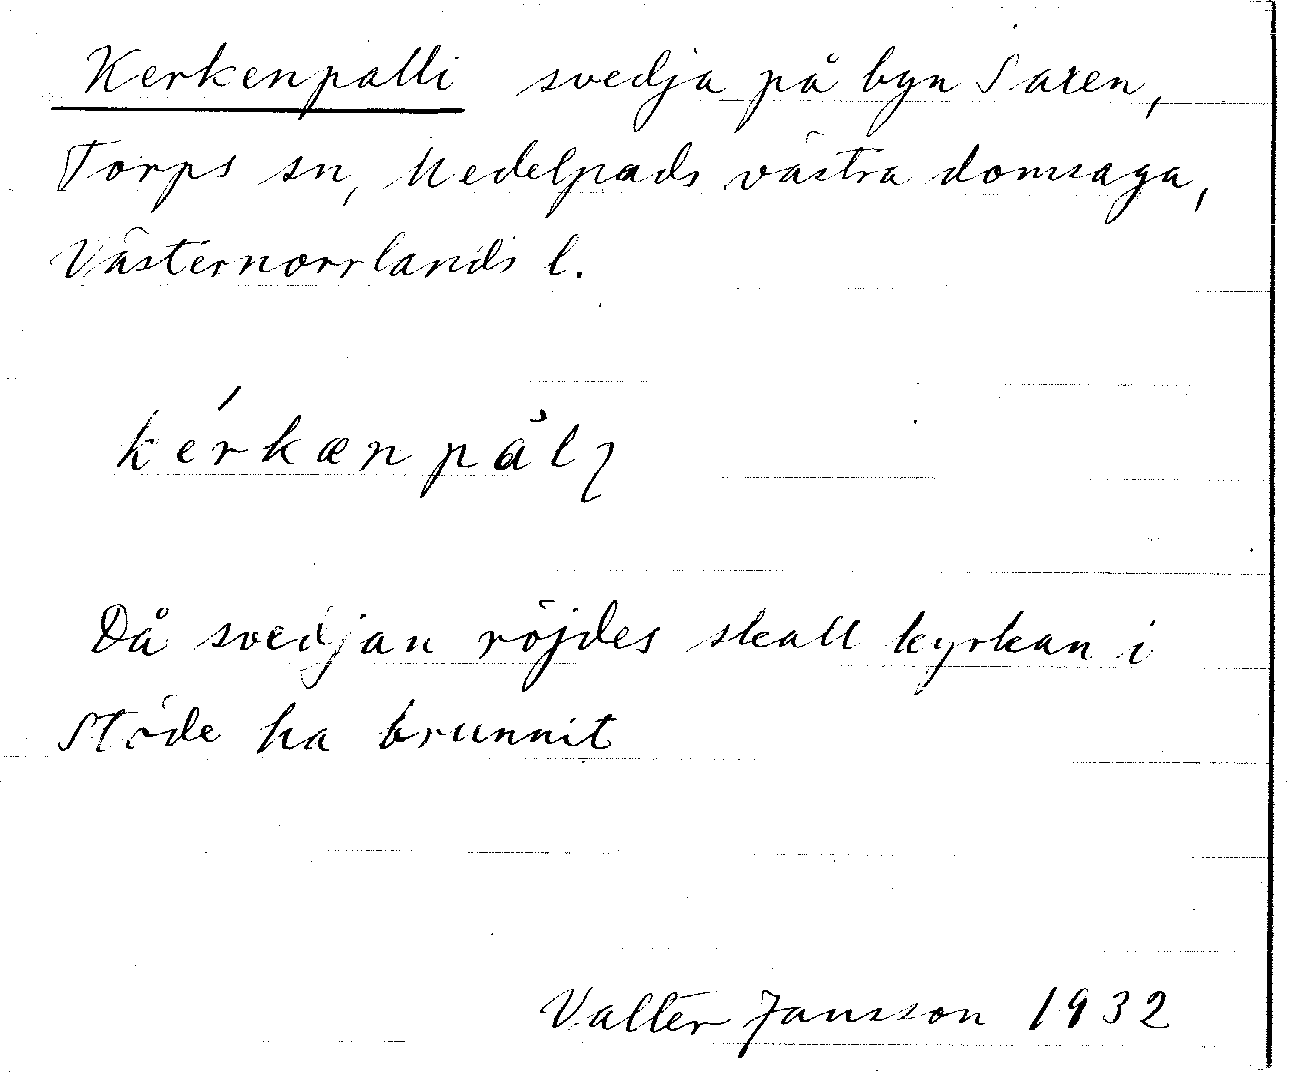 Kerkenpalli svedja på byn Saxen,
Torps sn, Medelpads västra domsaga,
Västernorrlands l.
kérkænpål
Då svedjan röjdes skall kyrkan i
Stöde ha brunnit
Valter Jansson 1932